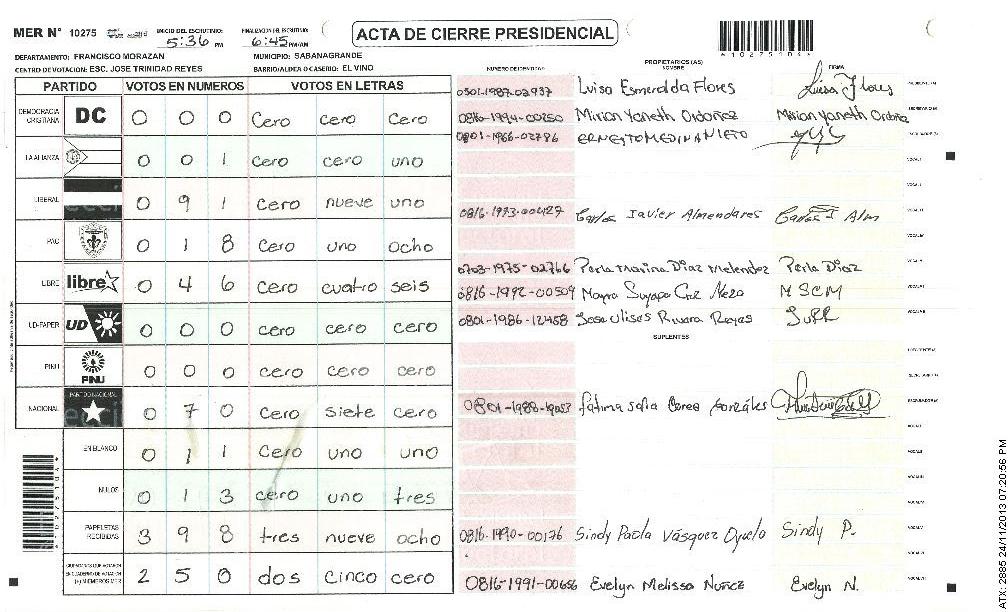 MER N° 10275
INICIO DEL ESCRUTINIO: 5:36 PM
FINALIZACION DEL ESCRUTINIO: 6:45 PM/AM
ACTA DE CIERRE PRESIDENCIAL
*10275409*
DEPARTAMENTO: FRANCISCO MORAZAN
MUNICIPIO: SABANAGRANDE
CENTRO DE VOTACION: ESC. JOSE TRINIDAD REYES
BARRIO/ALDEA O CASERIO: EL VINO
PARTIDO VOTOS EN NUMEROS VOTOS EN LETRAS
DEMOCRACIA CRISTIANA DC 0 0 0 Cero cero Cero
LA ALIANZA 0 0 1 Cero cero uno
LIBERAL 0 9 1 Cero nueve uno
PAC 0 1 8 Cero uno ocho
LIBRE libre 0 4 6 Cero cuatro seis
UD-FAPER UD 0 0 0 cero cero cero
PINU PINU 0 0 0 cero cero cero
NACIONAL PARTIDO NACIONAL 0 7 0 Cero siete cero
EN BLANCO 0 1 1 Cero uno uno
NULOS 0 1 3 cero uno tres
PAPELETAS RECIBIDAS 3 9 8 tres nueve ocho
CIUDADANOS QUE VOTARON EN CUADERNO DE VOTACION (+) MIEMBROS MER 2 5 0 dos cinco cero
PROPIETARIOS (AS)
NUMERO DE IDENTIDAD NOMBRE FIRMA
0501-1987-02937 Luisa Esmeralda Flores Luisa Flores
0816-1994-00250 Mirian Yaneth Ordoñez Mirian Yaneth Ordoñez
0801-1966-02786 ERNESTO MEDINA NIETO
0816-1973-00427 Carlos Javier Almendares Carlos J Alm
0703-1975-02766 Perla Marina Diaz Melendez Perla Diaz
0816-1992-00509 Mayra Suyapa Cruz Meza M S C M
0801-1986-12458 Jose Ulises Rivara Reyes
SUPLENTES
0801-1988-19053 Fatima Sofia Corea Gonzáles
0816-1990-00176 Sindy Paola Vásquez Oyuelo Sindy P.
0816-1991-00656 Evelyn Melissa Nuñez Evelyn N.
ATX-2985 24/11/2013 07:20:56 PM